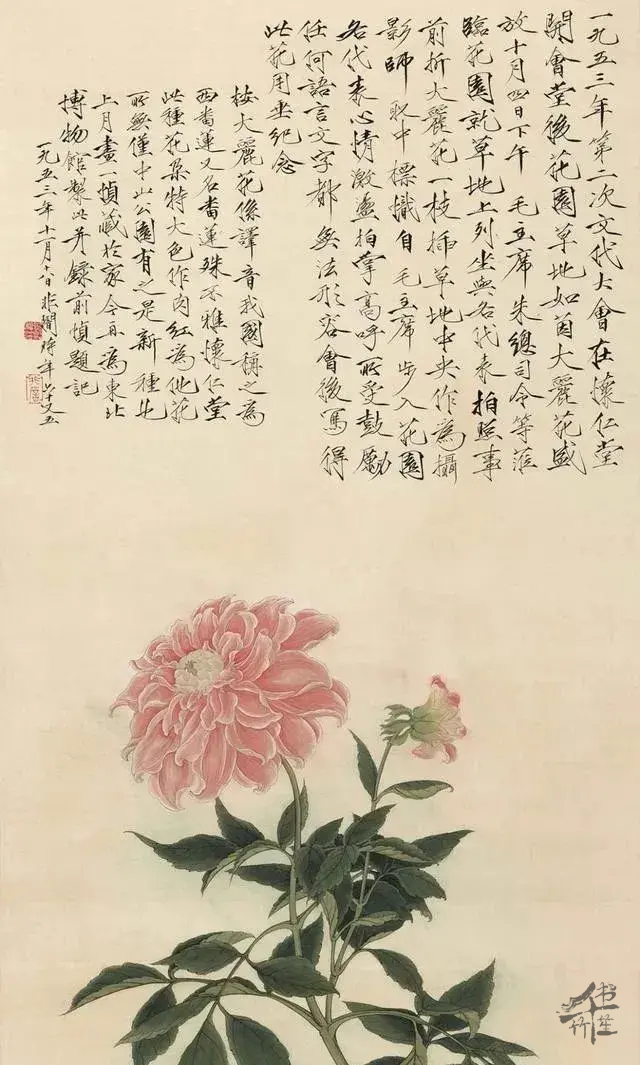 一九五三年第二次文代大會在懷仁堂
開會堂後花園草地如茵大麗花盛
放十月四日下午 毛主席朱總司令等蒞
臨花園就草地上列坐與各代表拍照事
前折大麗花一枝插草地中央作為攝
影師取中標識自毛主席步入花園
各代表心情激盪拍掌高呼所受鼓勵
任何語言文字都無法形容會後寫得
此花用坐紀念
按大麗花係譯音我國稱之為
西番蓮又名番蓮殊不雅懷仁堂
此種花朵特大色作肉紅為他花
所無僅中山公園有之是新種也
上月畫一幀藏於家今再為東北
博物館製此并錄前幀題記
一九五三年十一月十八日非闇時年六十又五